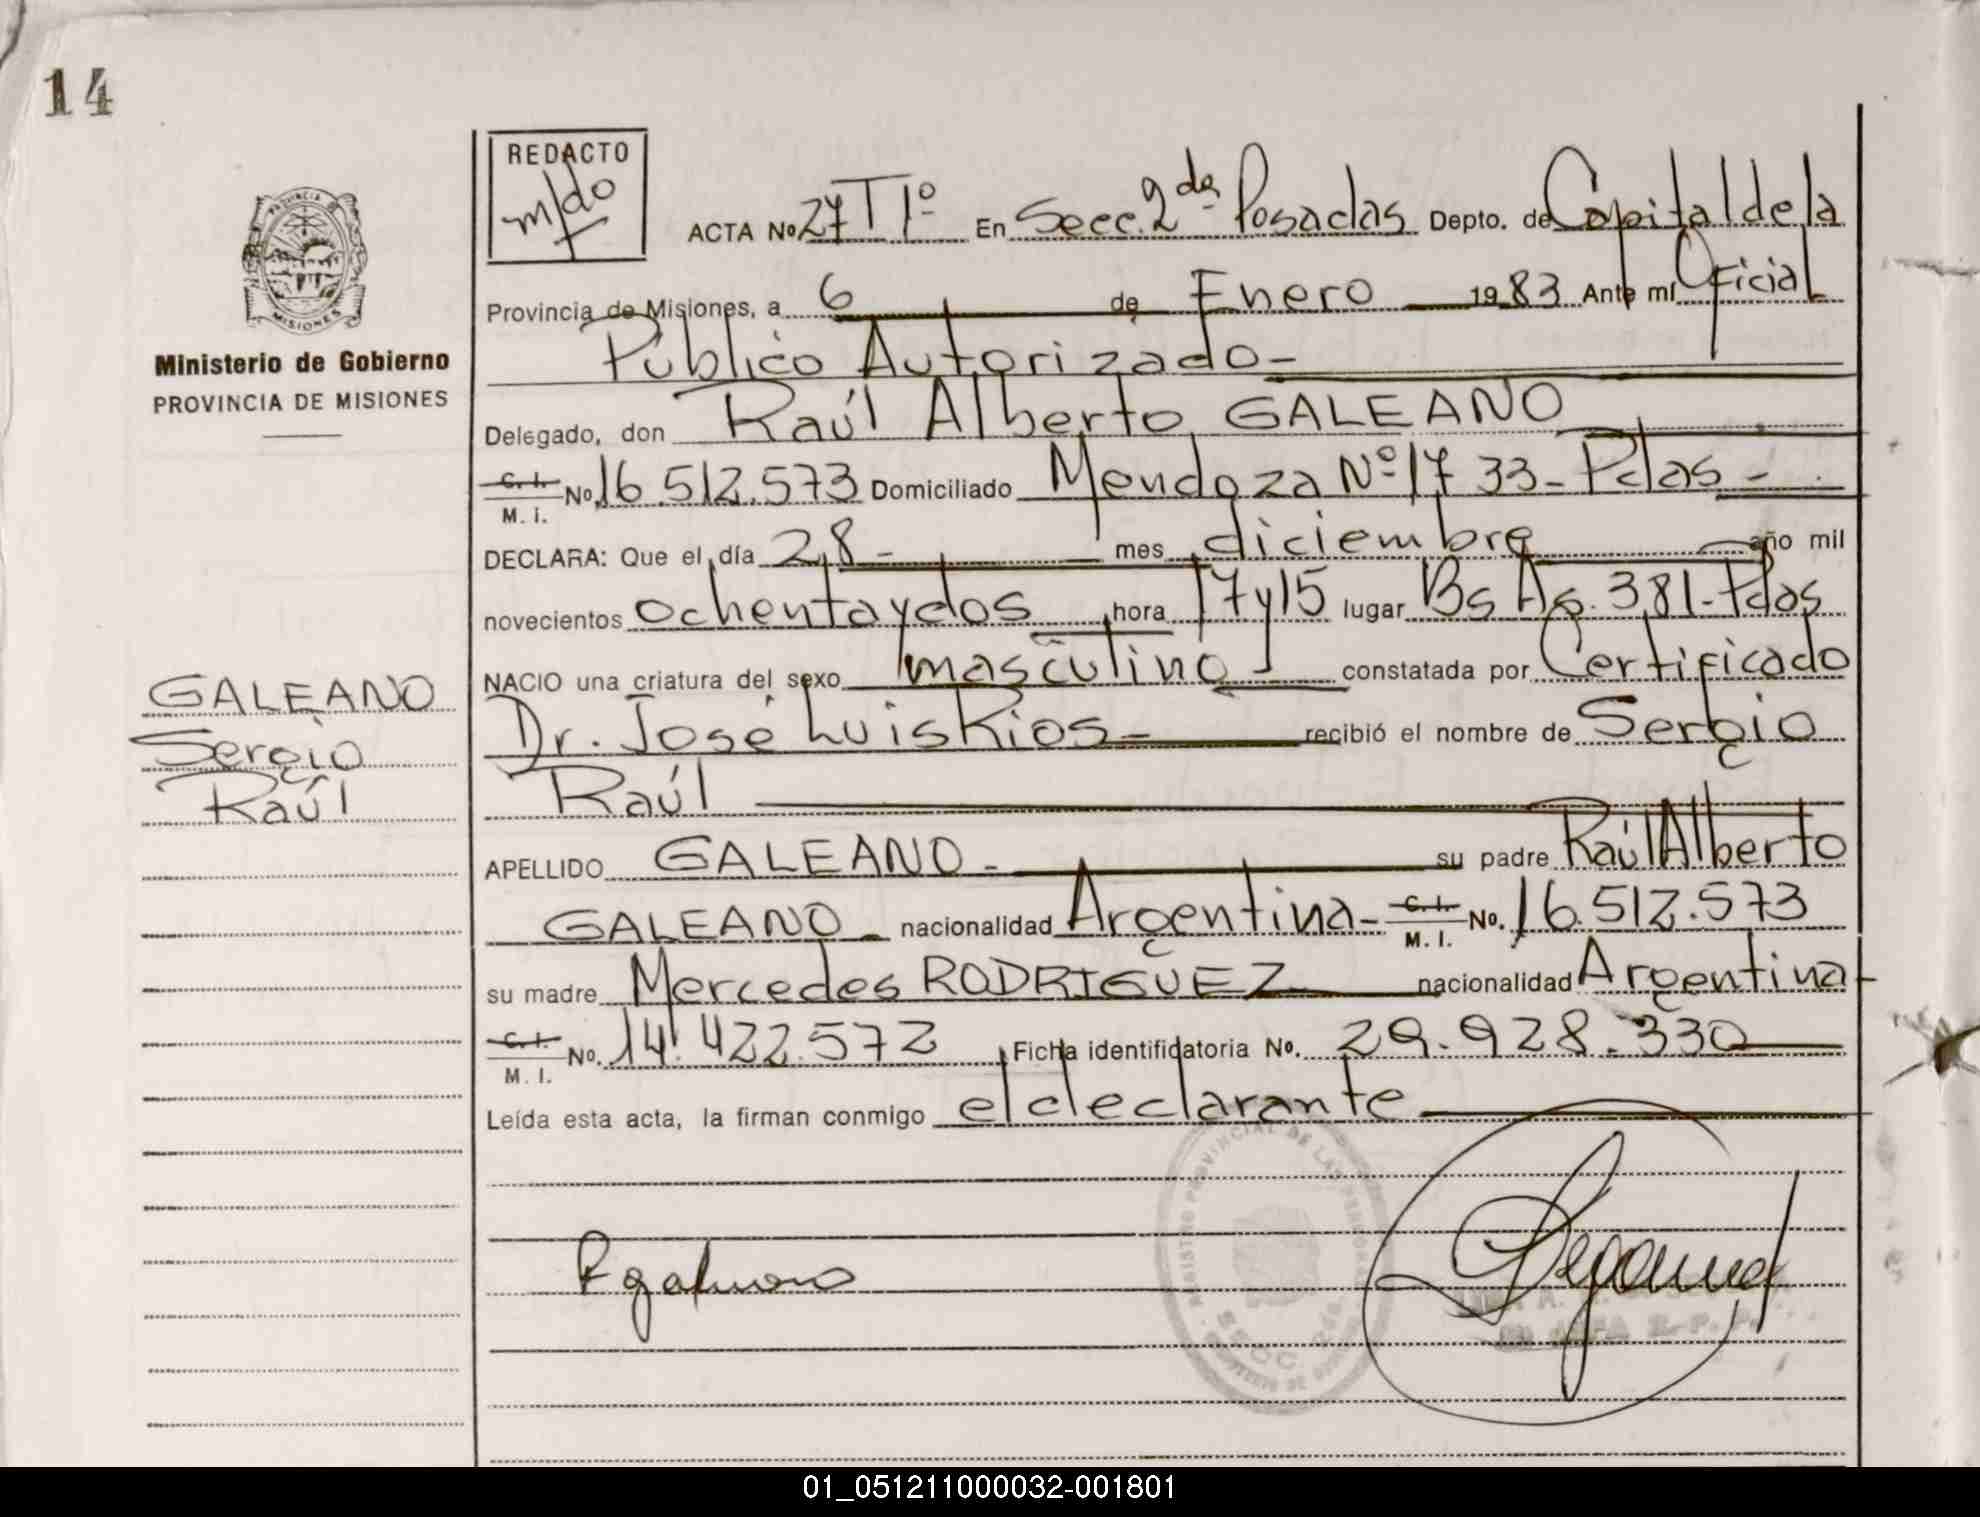 14
REDACTO
m/do
ACTA No 27 T 1º En Secc. 2da Posadas Depto. de Capital de la
Provincia de Misiones, a 6 de Enero 1983 Ante mí Oficial
Público Autorizado-
Delegado, don Raúl Alberto GALEANO
C. I. M. I. No 16.512.573 Domiciliado Mendoza Nº 1733- Pdas-
DECLARA: Que el día 28- mes diciembre año mil
novecientos ochentaydos hora 17y15 lugar Bs As. 381-Pdas
NACIO una criatura del sexo masculino constatada por Certificado
Dr. José Luis Rios- recibió el nombre de Sergio
Raúl
APELLIDO GALEANO- su padre Raúl Alberto
GALEANO- nacionalidad Argentina- C. I. M. I. No. 16.512.573
su madre Mercedes RODRIGUEZ nacionalidad Argentina-
C. I. M. I. No. 14.422.572 Ficha identificatoria No. 29.928.330
Leída esta acta, la firman conmigo el declarante
PROVINCIA DE
MISIONES
Ministerio de Gobierno
PROVINCIA DE MISIONES
GALEANO
Sergio
Raúl
REGISTRO PROVINCIAL DE LAS PERSONAS
SECC. 2da.
R galeano
01_051211000032-001801